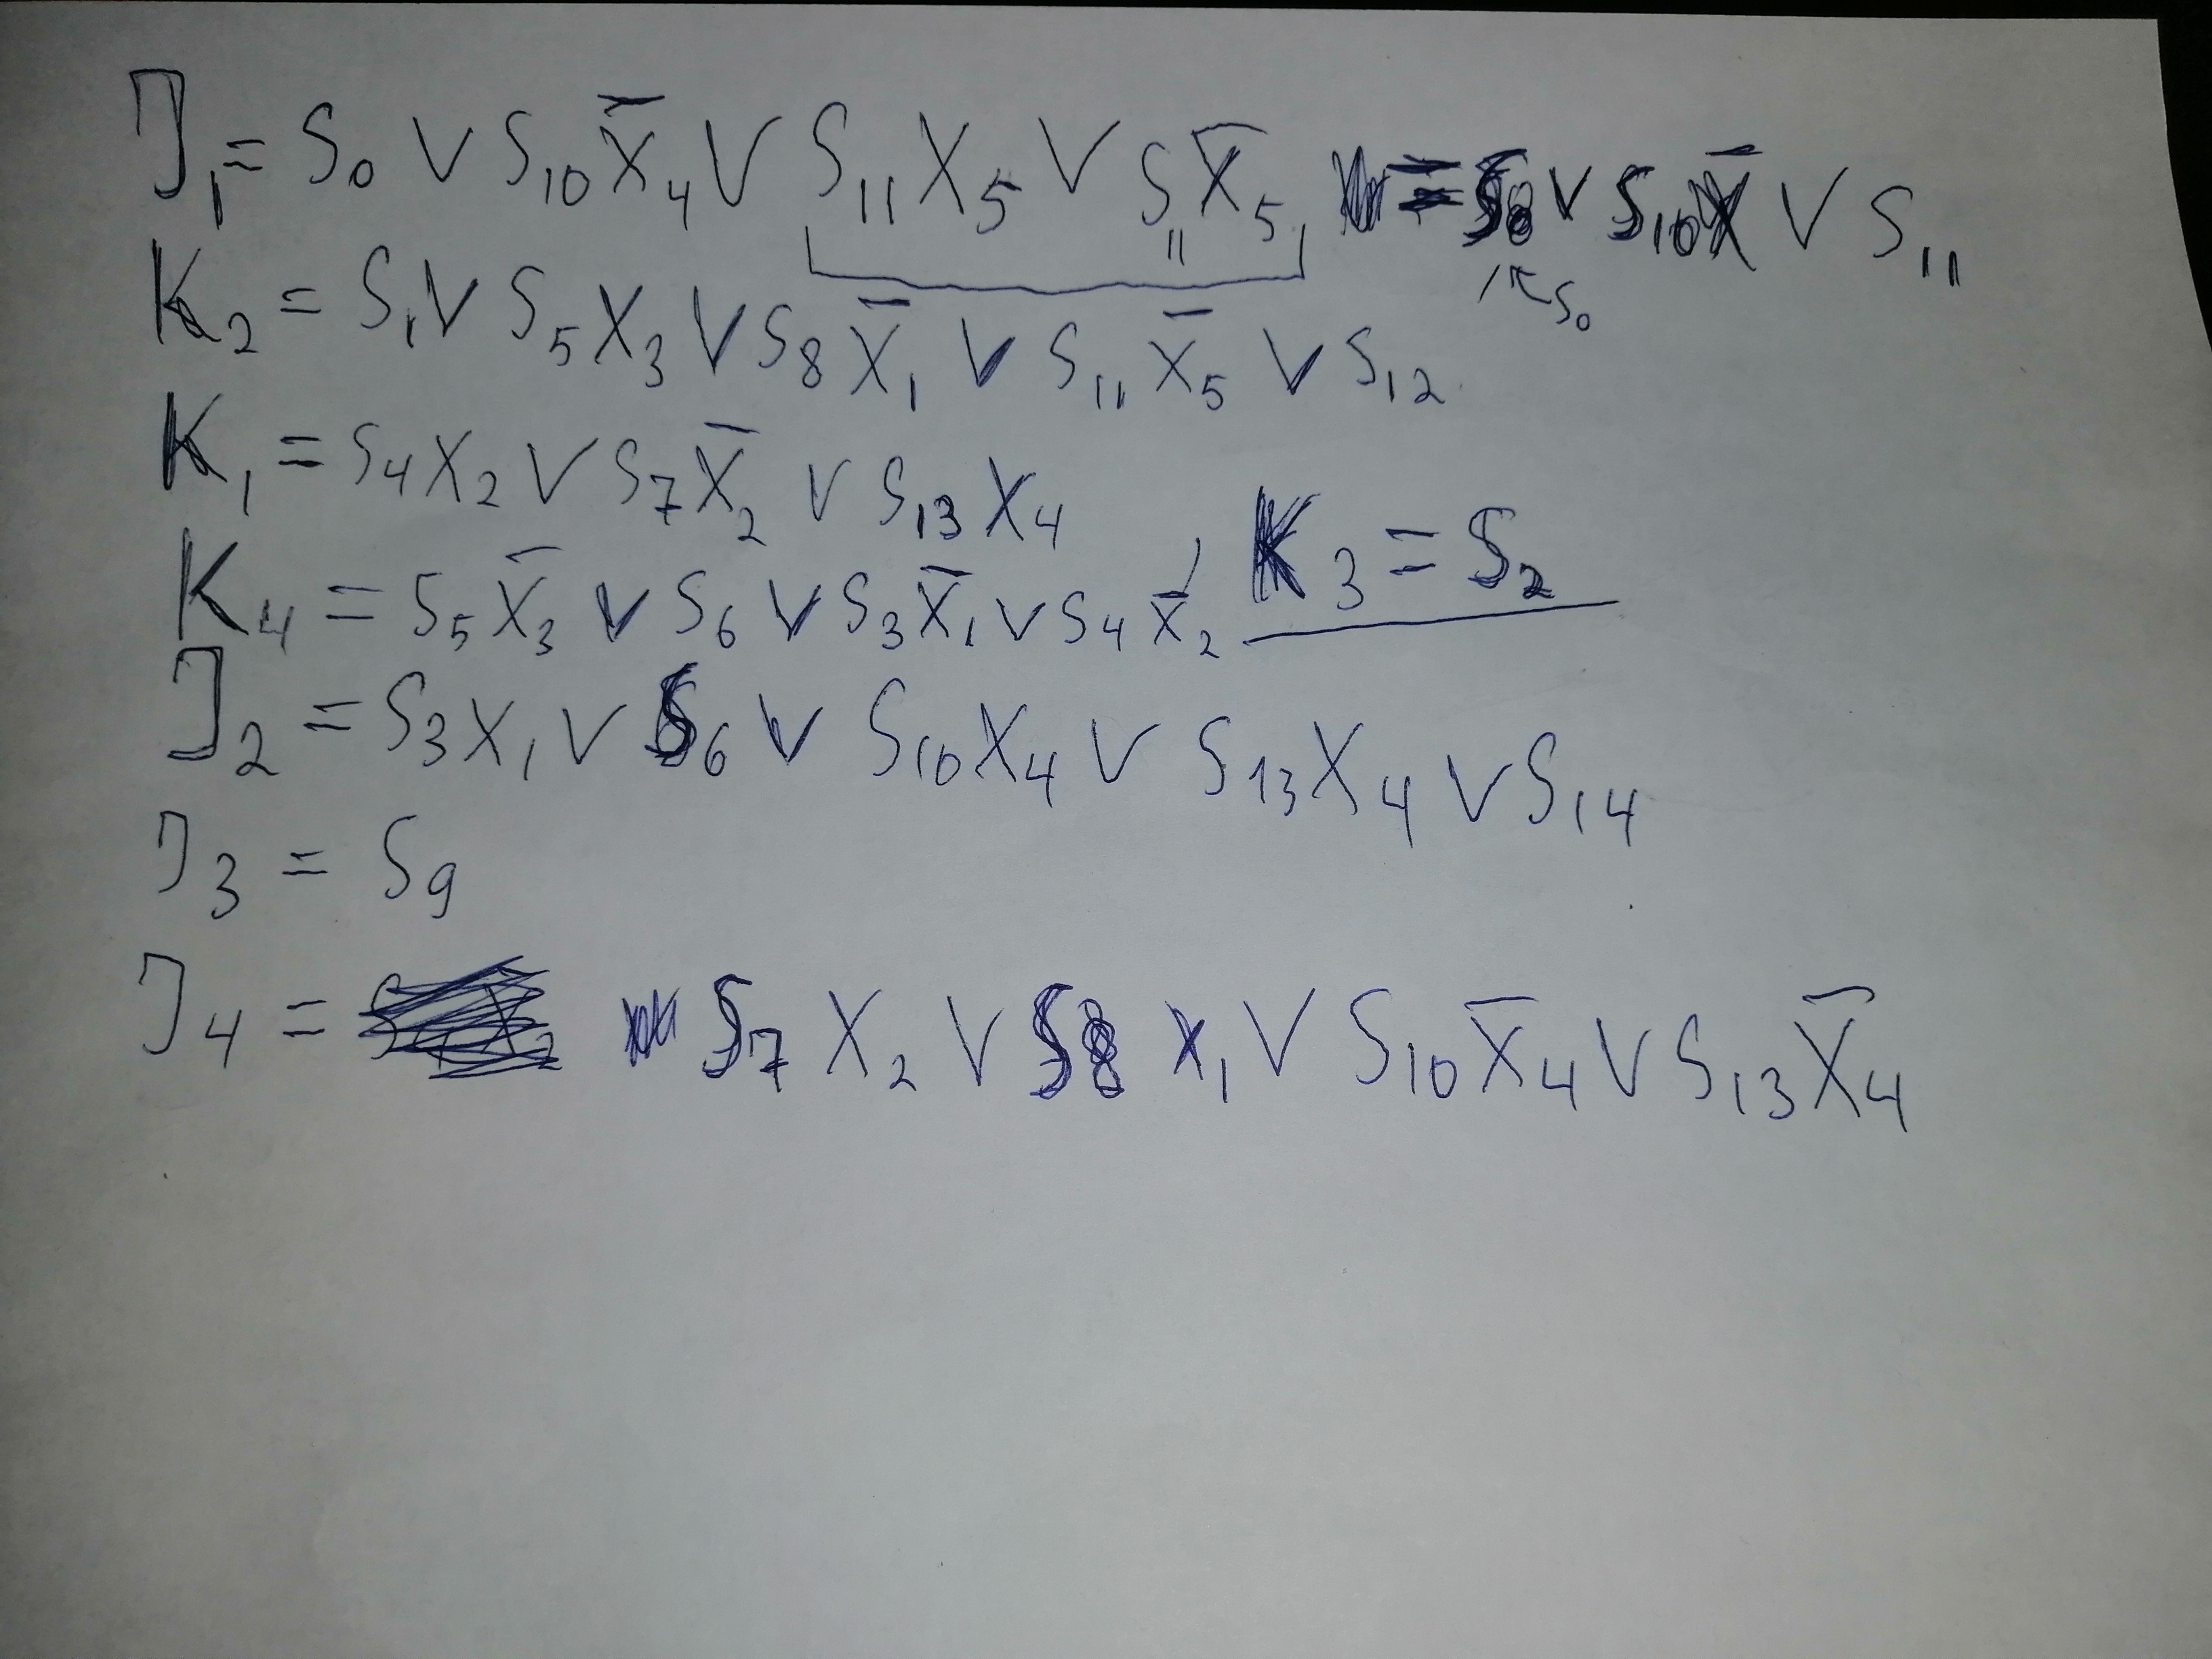 J₁ = S₀ V S₁₀ X̄₄ V S₁₁ X₅ V S₁₁ X̄₅ = S₀ V S₁₀ X̄ V S₁₁
S₀
K₂ = S₁ V S₅ X₃ V S₈ X̄₁ V S₁₁ X̄₅ V S₁₂
K₁ = S₄ X₂ V S₇ X̄₂ V S₁₃ X₄
K₄ = S₅ X̄₃ V S₆ V S₃ X̄₁ V S₄ X̄₂, K₃ = S₂
J₂ = S₃ X₁ V S₆ V S₁₀ X₄ V S₁₃ X₄ V S₁₄
J₃ = S₉
J₄ = S₇ X₂ V S₈ X₁ V S₁₀ X̄₄ V S₁₃ X̄₄